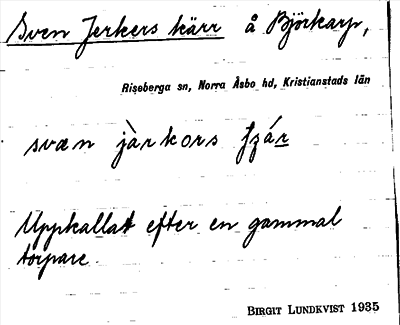 Sven Jerkers kärr å Björkarp,
Riseberga sn, Norra Åsbo hd, Kristianstads län
svæn jàrkors
Uppkallat efter en gammal
torpare.
BIRGIT LUNDKVIST 1935